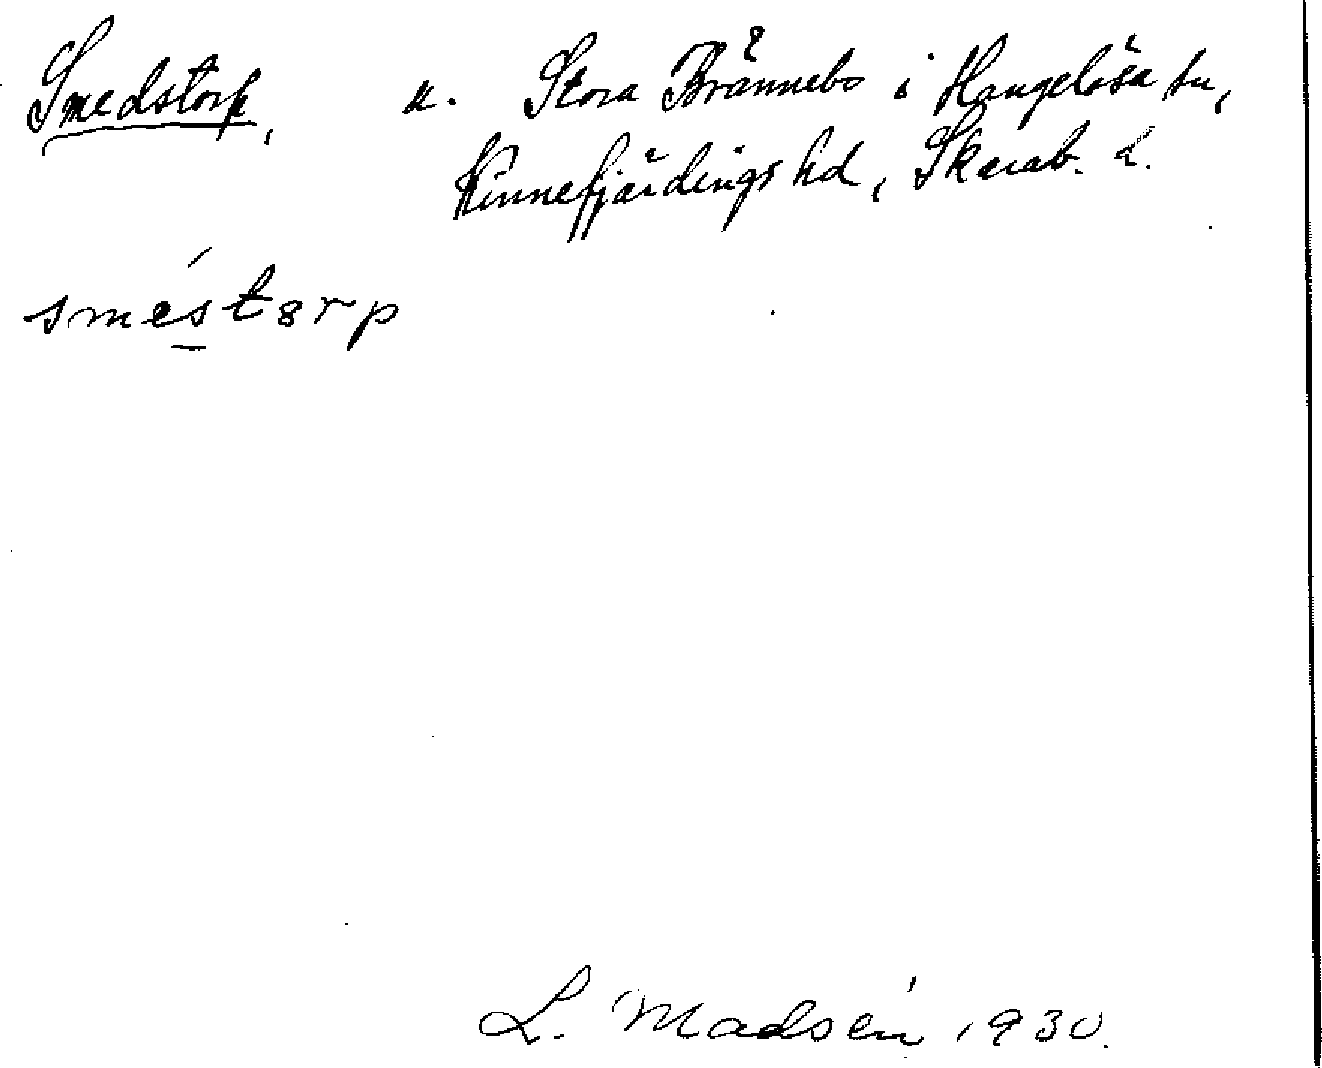 Smedstorp, u. Stora Brännebo i Hangelösa sn,
Kinnefjärdings hd, Skarab. L.
sméstorp
L. Madsén 1930.